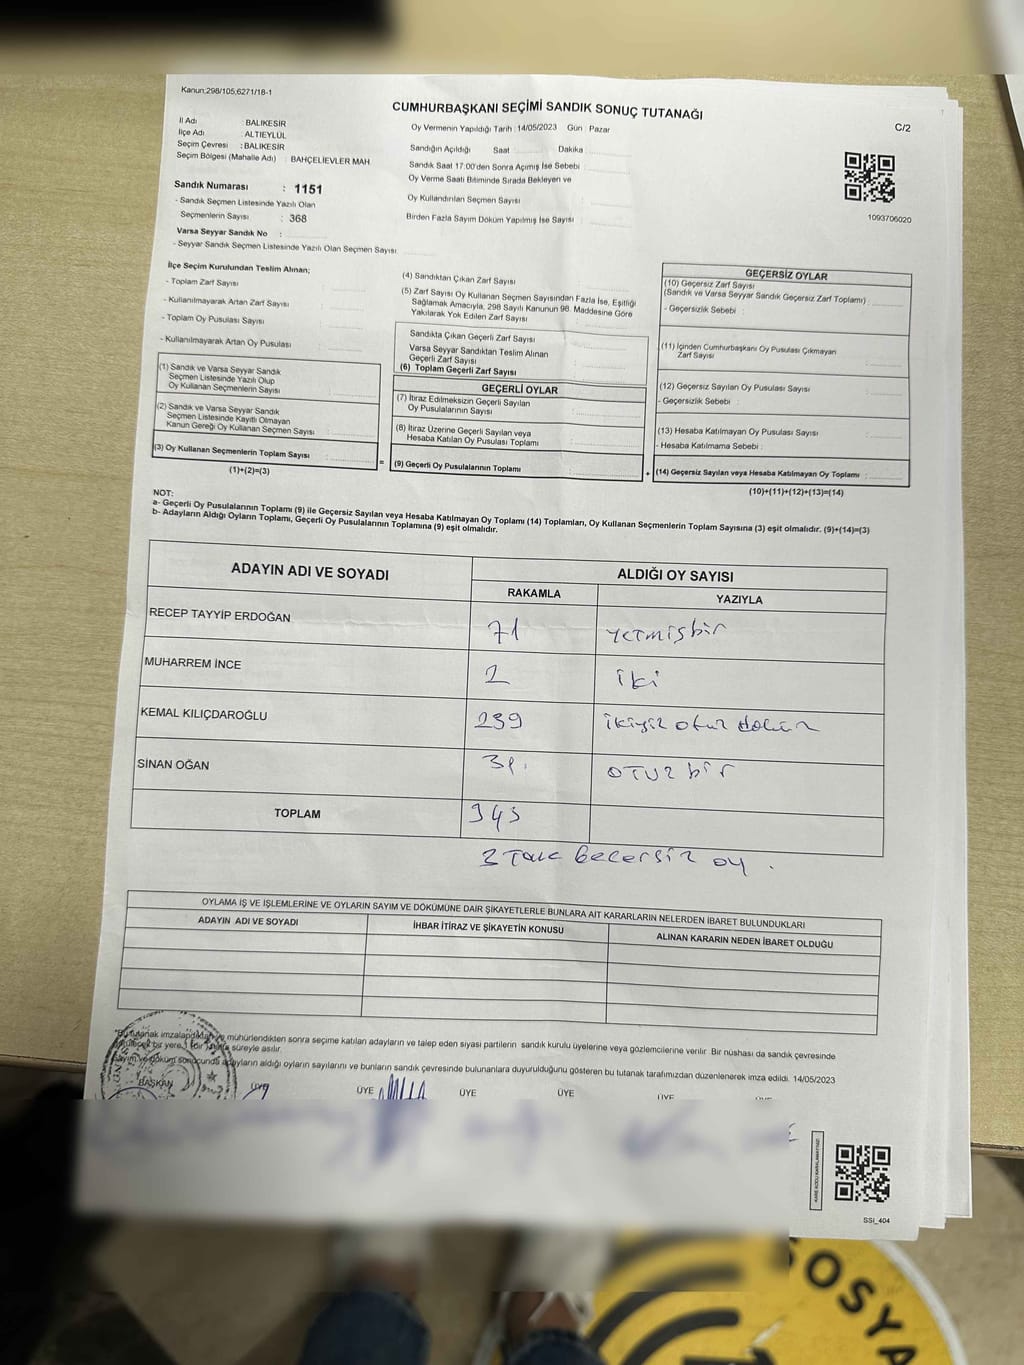 Kanun:298/105,6271/18-1
CUMHURBAŞKANI SEÇİMİ SANDIK SONUÇ TUTANAĞI
C/2
İl Adı : BALIKESİR
İlçe Adı : ALTIEYLÜL
Seçim Çevresi : BALIKESİR
Seçim Bölgesi (Mahalle Adı) : BAHÇELİEVLER MAH
Oy Vermenin Yapıldığı Tarih : 14/05/2023 Gün : Pazar
Sandığın Açıldığı Saat Dakika
Sandık Saat 17:00'den Sonra Açımış İse Sebebi
Oy Verme Saati Bitiminde Sırada Bekleyen ve
Oy Kullandırılan Seçmen Sayısı
Birden Fazla Sayım Döküm Yapılmış İse Sayısı
1093706020
Sandık Numarası : 1151
- Sandık Seçmen Listesinde Yazılı Olan
Seçmenlerin Sayısı : 368
Varsa Seyyar Sandık No :
- Seyyar Sandık Seçmen Listesinde Yazılı Olan Seçmen Sayısı
İlçe Seçim Kurulundan Teslim Alınan;
- Toplam Zarf Sayısı
- Kullanılmayarak Artan Zarf Sayısı
- Toplam Oy Pusulası Sayısı
- Kullanılmayarak Artan Oy Pusulası
(1) Sandık ve Varsa Seyyar Sandık
Seçmen Listesinde Yazılı Olup
Oy Kullanan Seçmenlerin Sayısı
(2) Sandık ve Varsa Seyyar Sandık
Seçmen Listesinde Kayıtlı Olmayan
Kanun Gereği Oy Kullanan Seçmen Sayısı
(3) Oy Kullanan Seçmenlerin Toplam Sayısı
(1)+(2)=(3)
(4) Sandıktan Çıkan Zarf Sayısı
(5) Zarf Sayısı Oy Kullanan Seçmen Sayısından Fazla İse, Eşitliği
Sağlamak Amacıyla, 298 Sayılı Kanunun 98. Maddesine Göre
Yakılarak Yok Edilen Zarf Sayısı
Sandıkta Çıkan Geçerli Zarf Sayısı
Varsa Seyyar Sandıktan Teslim Alınan
Geçerli Zarf Sayısı
(6) Toplam Geçerli Zarf Sayısı
GEÇERLİ OYLAR
(7) İtiraz Edilmeksizin Geçerli Sayılan
Oy Pusulalarının Sayısı
(8) İtiraz Üzerine Geçerli Sayılan veya
Hesaba Katılan Oy Pusulası Toplamı
= (9) Geçerli Oy Pusulalarının Toplamı
GEÇERSİZ OYLAR
(10) Geçersiz Zarf Sayısı
(Sandık ve Varsa Seyyar Sandık Geçersiz Zarf Toplamı)
- Geçersizlik Sebebi :
(11) İçinden Cumhurbaşkanı Oy Pusulası Çıkmayan
Zarf Sayısı
(12) Geçersiz Sayılan Oy Pusulası Sayısı
- Geçersizlik Sebebi :
(13) Hesaba Katılmayan Oy Pusulası Sayısı
- Hesaba Katılmama Sebebi :
+ (14) Geçersiz Sayılan veya Hesaba Katılmayan Oy Toplamı :
(10)+(11)+(12)+(13)=(14)
NOT:
a- Geçerli Oy Pusulalarının Toplamı (9) ile Geçersiz Sayılan veya Hesaba Katılmayan Oy Toplamı (14) Toplamları, Oy Kullanan Seçmenlerin Toplam Sayısına (3) eşit olmalıdır. (9)+(14)=(3)
b- Adayların Aldığı Oyların Toplamı, Geçerli Oy Pusulalarının Toplamına (9) eşit olmalıdır.
ADAYIN ADI VE SOYADI ALDIĞI OY SAYISI
RAKAMLA YAZIYLA
RECEP TAYYİP ERDOĞAN 71 yetmişbir
MUHARREM İNCE 2 iki
KEMAL KILIÇDAROĞLU 239 ikiyüz otuz dokuz
SİNAN OĞAN 31. OTUZ bir
TOPLAM 343
3 Tane Geçersiz oy.
OYLAMA İŞ VE İŞLEMLERİNE VE OYLARIN SAYIM VE DÖKÜMÜNE DAİR ŞİKAYETLERLE BUNLARA AİT KARARLARIN NELERDEN İBARET BULUNDUKLARI
ADAYIN ADI VE SOYADI İHBAR İTİRAZ VE ŞİKAYETİN KONUSU ALINAN KARARIN NEDEN İBARET OLDUĞU
mühürlendikten sonra seçime katılan adayların ve talep eden siyasi partilerin sandık kurulu üyelerine veya gözlemcilerine verilir. Bir nüshası da sandık çevresinde
süreyle asılır.
adayların aldığı oyların sayılarını ve bunların sandık çevresinde bulunanlara duyurulduğunu gösteren bu tutanak tarafımızdan düzenlenerek imza edildi. 14/05/2023
BAŞKAN ÜYE ÜYE ÜYE ÜYE
SSI_404
SOSYA